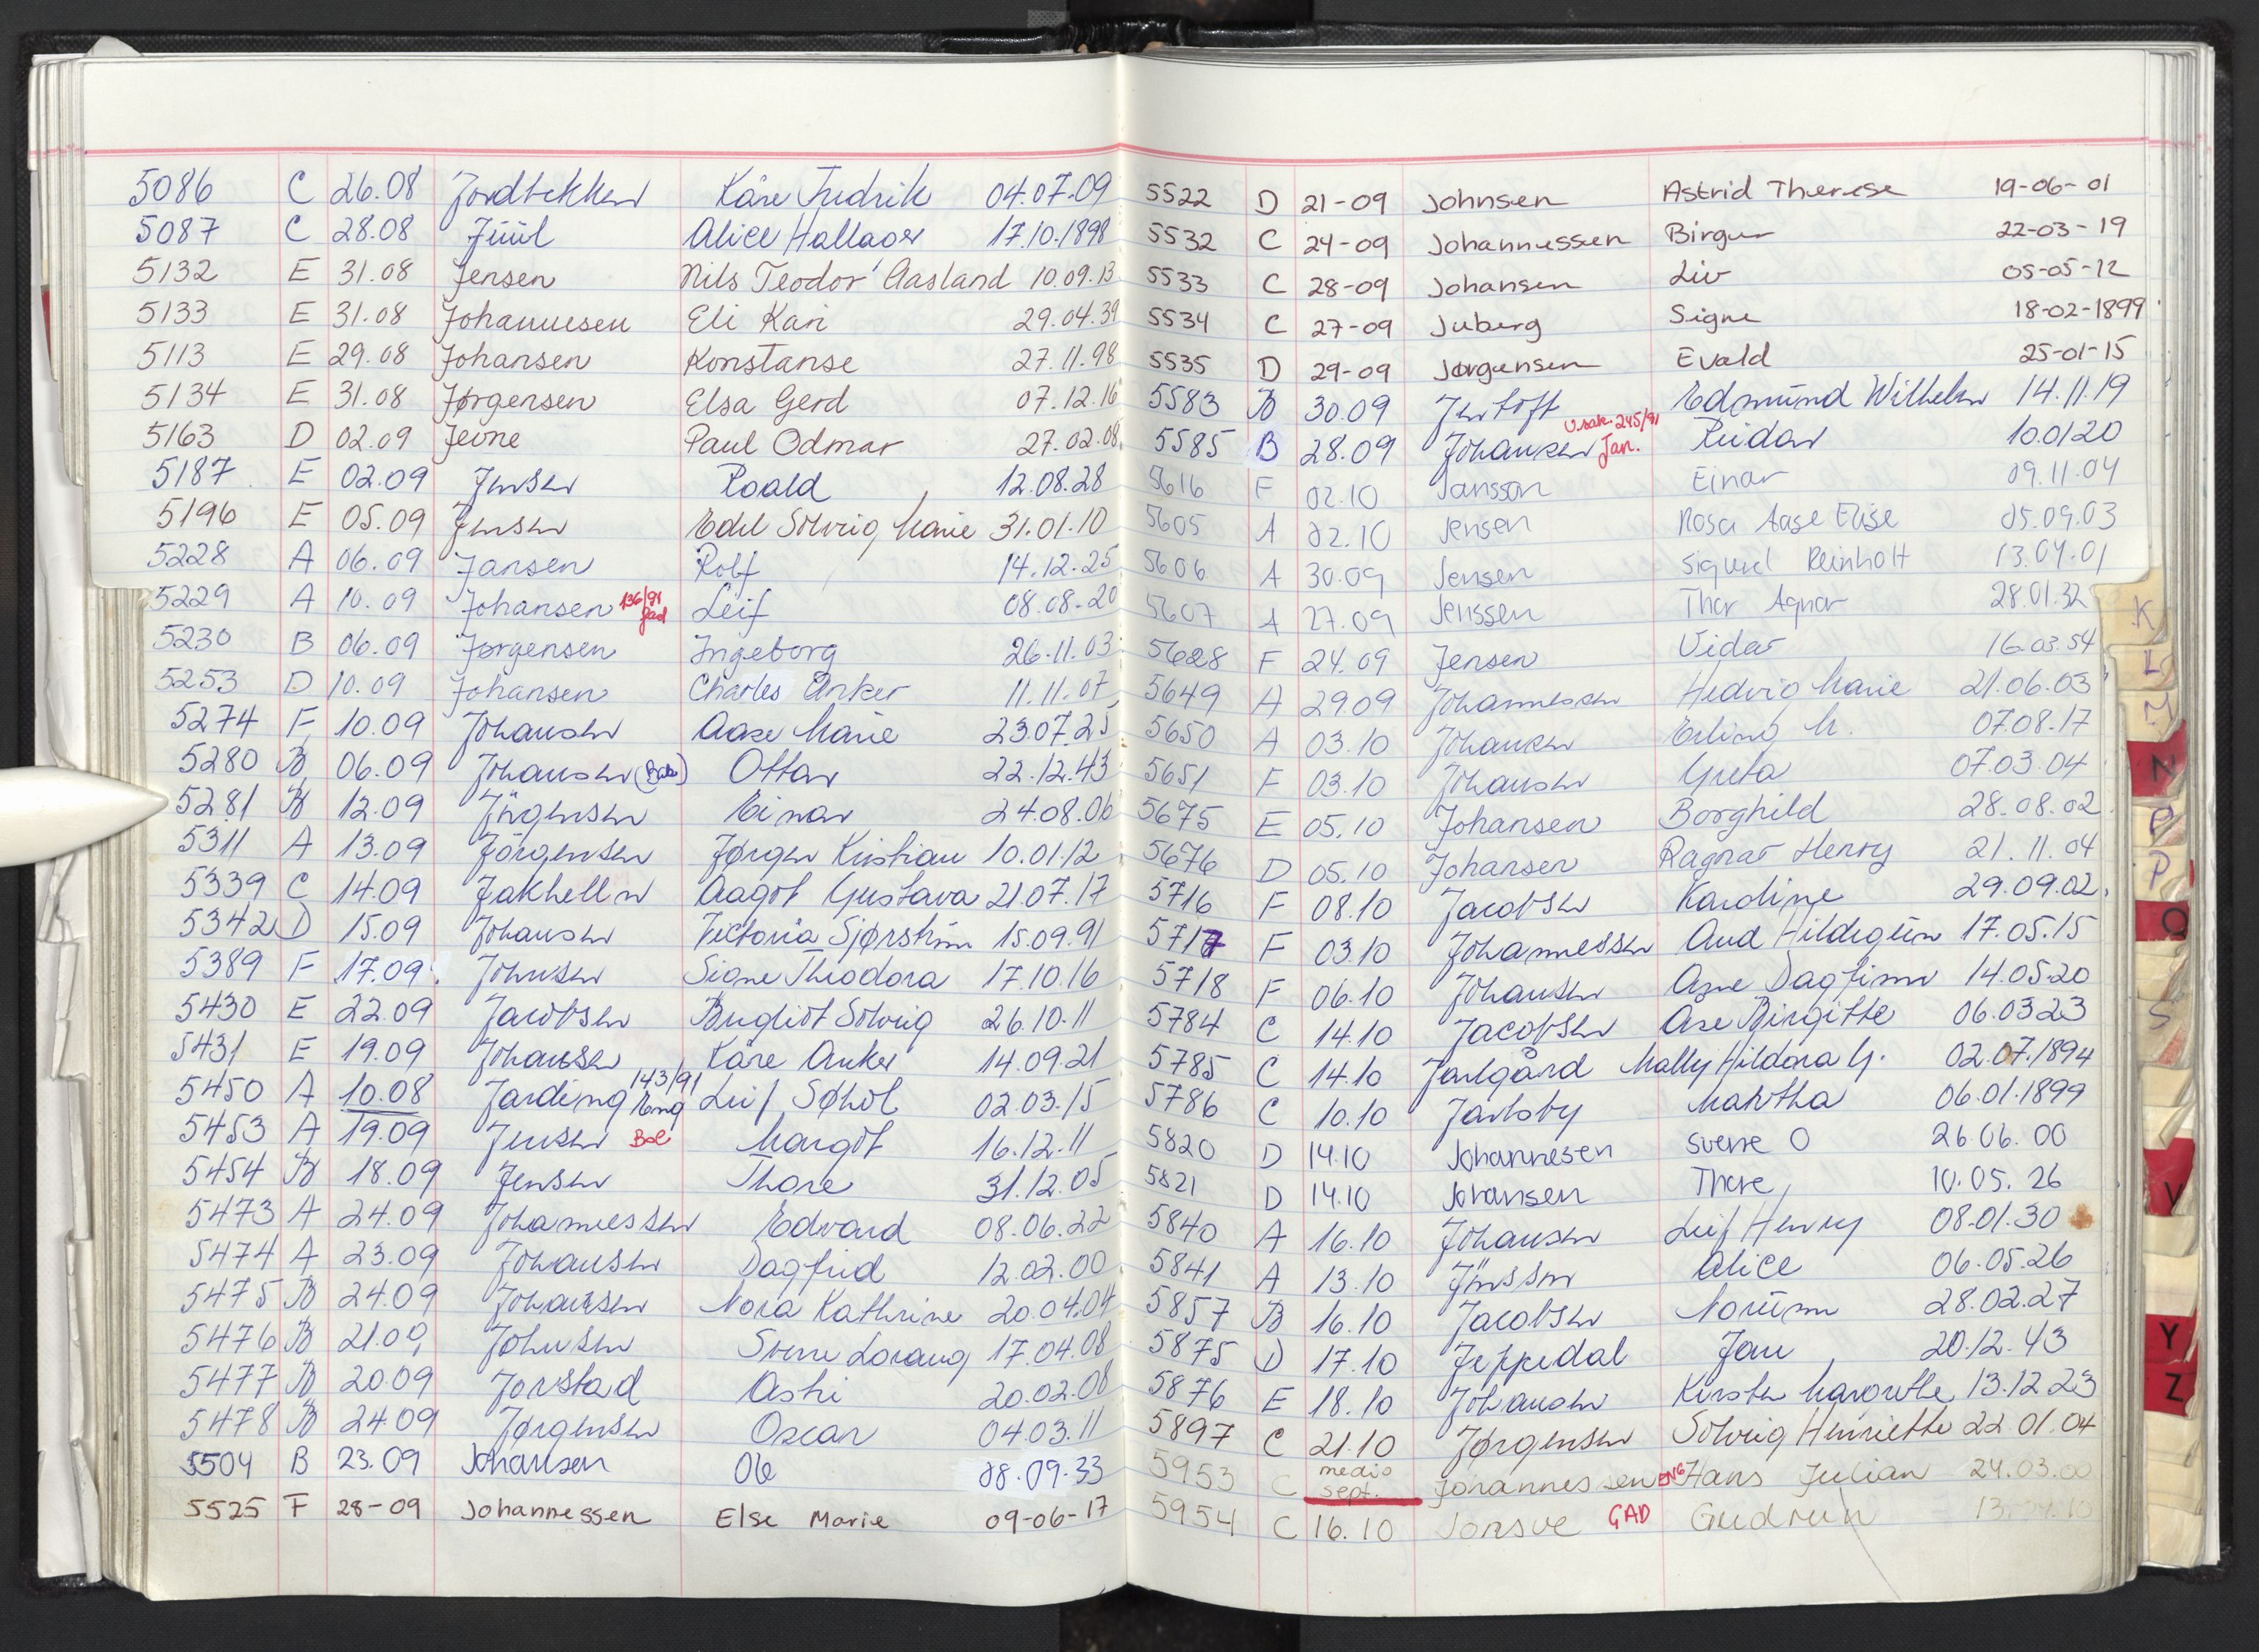 5086 C 26.08 Jordbekken Kåre Fredrik 04.07.09
5087 C 28.08 Júúl Alice Hallaor 17.10.1898
5132 E 31.08 Jensen Nils Teodor Aasland 10.09.13
5133 E 31.08 Johannesen Eli Kari 29.04.39
5113 E 29.08 Johansen Konstanse 27.11.98
5134 E 31.08 Jørgensen Elsa Gerd 07.12.16
5163 D 02.09 Jevne Paul Odmar 27.02.08
5187 E 02.09 Jensen Roald 12.08.28
5196 E 05.09 Jensen Edel Solveig Marie 31.01.10
5228 A 06.09 Jansen Rolf 14.12.25
5229 A 10.09 Johansen 136/91 Gad Leif 08.08-20
5230 B 06.09 Jørgensen Ingeborg 26.11.03
5253 D 10.09 Johansen Charles Anker 11.11.07
5274 F 10.09 Johansen Aase Marie 23.07.25
5280 B 06.09 Johansen Ottar 22.12.43
5281 B 12.09 Jörgensen Einar 24.08.06
5311 A 13.09 Jörgensen Jørgen Kristian 10.01.12
5339 C 14.09 Jakhelln Aagot Gustava 21.07.17
5342 D 15.09 Johansen Victoria Sjørstrøm 15.09.91
5389 F 17.09 Johnsen Signe Theodora 17.10.16
5430 E 22.09 Jacobsen Bergliot Solveig 26.10.11
5431 E 19.09 Johansen Kåre Anker 14.09.21
5450 A 10.08 Jarding 143/91 Eng Leif Søhol 02.03.15
5453 A 19.09 Jensen Bol Margot 16.12.11
5454 B 18.09 Jensen Thore 31.12.05
5473 A 24.09 Johannessen Edvard 08.06.22
5474 A 23.09 Johansen Dagfrid 12.02.00
5475 B 24.09 Johansen Nora Kathrine 20.04.04
5476 B 21.09 Johnsen Sverre Lorang 17.04.08
5477 B 20.09 Jorstad Asti 20.02.08
5478 B 24.09 Jørgensen Oscar 04.03.11
5504 B 23.09 Johansen Ole 08.09.33
5525 F 28-09 Johannessen Else Marie 09-06-17
5522 D 21-09 Johnsen Astrid Therese 19-06-01
5532 C 24-09 Johannessen Birger 22-03-19
5533 C 28-09 Johansen Liv 05-05-12
5534 C 27-09 Juberg Signe 18-02-1899
5535 D 29-09 Jørgensen Evald 25-01-15
5583 B 30.09 Jentoft Edmund Wilhelm 14.11.19
5585 B 28.09 Johansen U.sak. 245/91 Jan. Reidar 10.01.20
5616 F 02.10 Jansson Einar 09.11.04
5605 A 02.10 Jensen Rosa Aase Elise 05.09.03
5606 A 30.09 Jensen Sigurd Reinholt 13.04.01
5607 A 27.09 Jenssen Thor Agnar 28.01.32
5628 F 24.09 Jensen Vidar 16.03.54
5649 A 29.09 Johannessen Hedvig Marie 21.06.03
5650 A 03.10 Johansen Erling M. 07.08.17
5651 F 03.10 Johansen Greta 07.03.04
5675 E 05.10 Johansen Borghild 28.08.02
5676 D 05.10 Johansen Ragnar Henry 21.11.04
5716 F 08.10 Jacobsen Karoline 29.09.02
5717 F 03.10 Johannessen Aud Hildegun 17.05.15
5718 F 06.10 Johansen Age Dagfinn 14.05.20
5784 C 14.10 Jacobsen Åse Birgitte 06.03.23
5785 C 14.10 Jarlgård Mally Hildora G. 02.07.1894
5786 C 10.10 Jarlsby Martha 06.01.1899
5820 D 14.10 Johannesen Sverre O 26.06.00
5821 D 14.10 Johansen Thore 10.05.26
5840 A 16.10 Johansen Leif Henry 08.01.30
5841 A 13.10 Jönsson Alice 06.05.26
5857 B 16.10 Jacobsen Norunn 28.02.27
5875 D 17.10 Jeppedal Jan 20.12.43
5876 E 18.10 Johansen Kirsten Margrethe 13.12.23
5897 C 21.10 Jørgensen Solveig Henriette 22.01.04
5953 C medio sept. Johannessen ENG Hans Julian 24.03.00
5954 C 16.10 Jonsve GAD Gudrun
K
L
M
N
O
P
Q
S
V
Y
Z